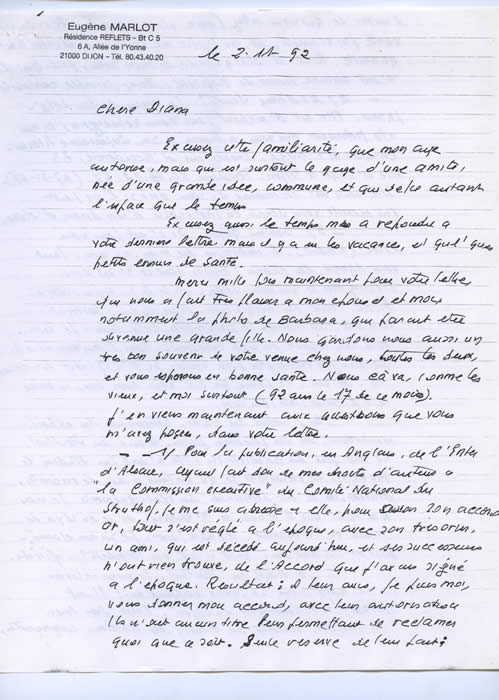 Eugène MARLOT
Résidence REFLETS - Bt C 5
6 A, Allée de l'Yonne
21000 DIJON - Tél. 80.43.40.20
le 2.11.92
Chère Diana
Excusez cette familiarité, que mon age
autorise, mais qui est surtout le gage d'une amitié,
née d'une grande idée, commune, et qui défie autant
l'espace que le temps
Excusez aussi le temps mis a repondre a
votre dernière lettre mais il y a eu les vacances, et quelques
petits ennuis de santé.
Merci mille fois maintenant pour votre lettre,
qui nous a fait très plaisir a mon epouse et moi
notamment la photo de Barbara, qui parait etre
devenue une grande fille. Nous gardons nous aussi un
tres bon souvenir de votre venue chez nous, toutes les deux,
et vous esperons en bonne santé. Nous ça va, comme les
vieux, et moi surtout (92 ans le 17 de ce mois).
J'en viens maintenant aux questions que vous
m'avez posées, dans votre lettre.
- 1/ Pour la publication, en Anglais, de l'Enfer
d'Alsace, ayant fait don de mes droits d'auteur a
"la Commission exécutive" du Comité National du
Struthof, je me suis adressé a elle, pour son accord
Or, tout s'est réglé a l'epoque, avec son trésorier,
un ami, qui est décédé aujourd'hui, et ses successeurs
n'ont rien trouvé, de l'Accord que j'avais signé
a l'époque. Resultat: a leur avis, je puis moi,
vous donner mon accord, avec leur autorisation
Ils n'ont aucun titre leur permettant de reclamer
quoi que ce soit. Seule reserve de leur part: